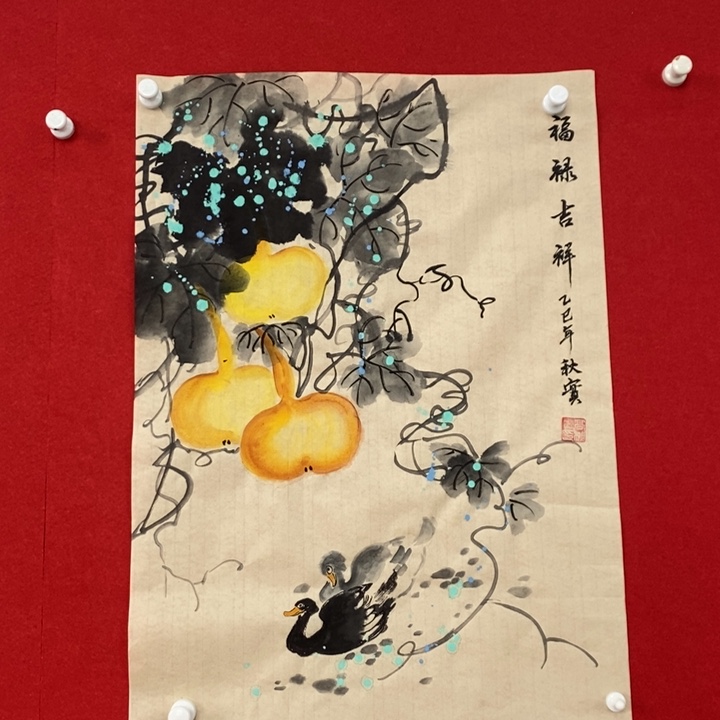 福禄吉祥乙巳年秋实